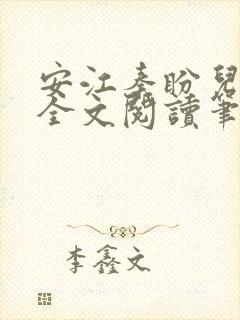 安江秦盼兒
全文閱讀筆
李鑫文